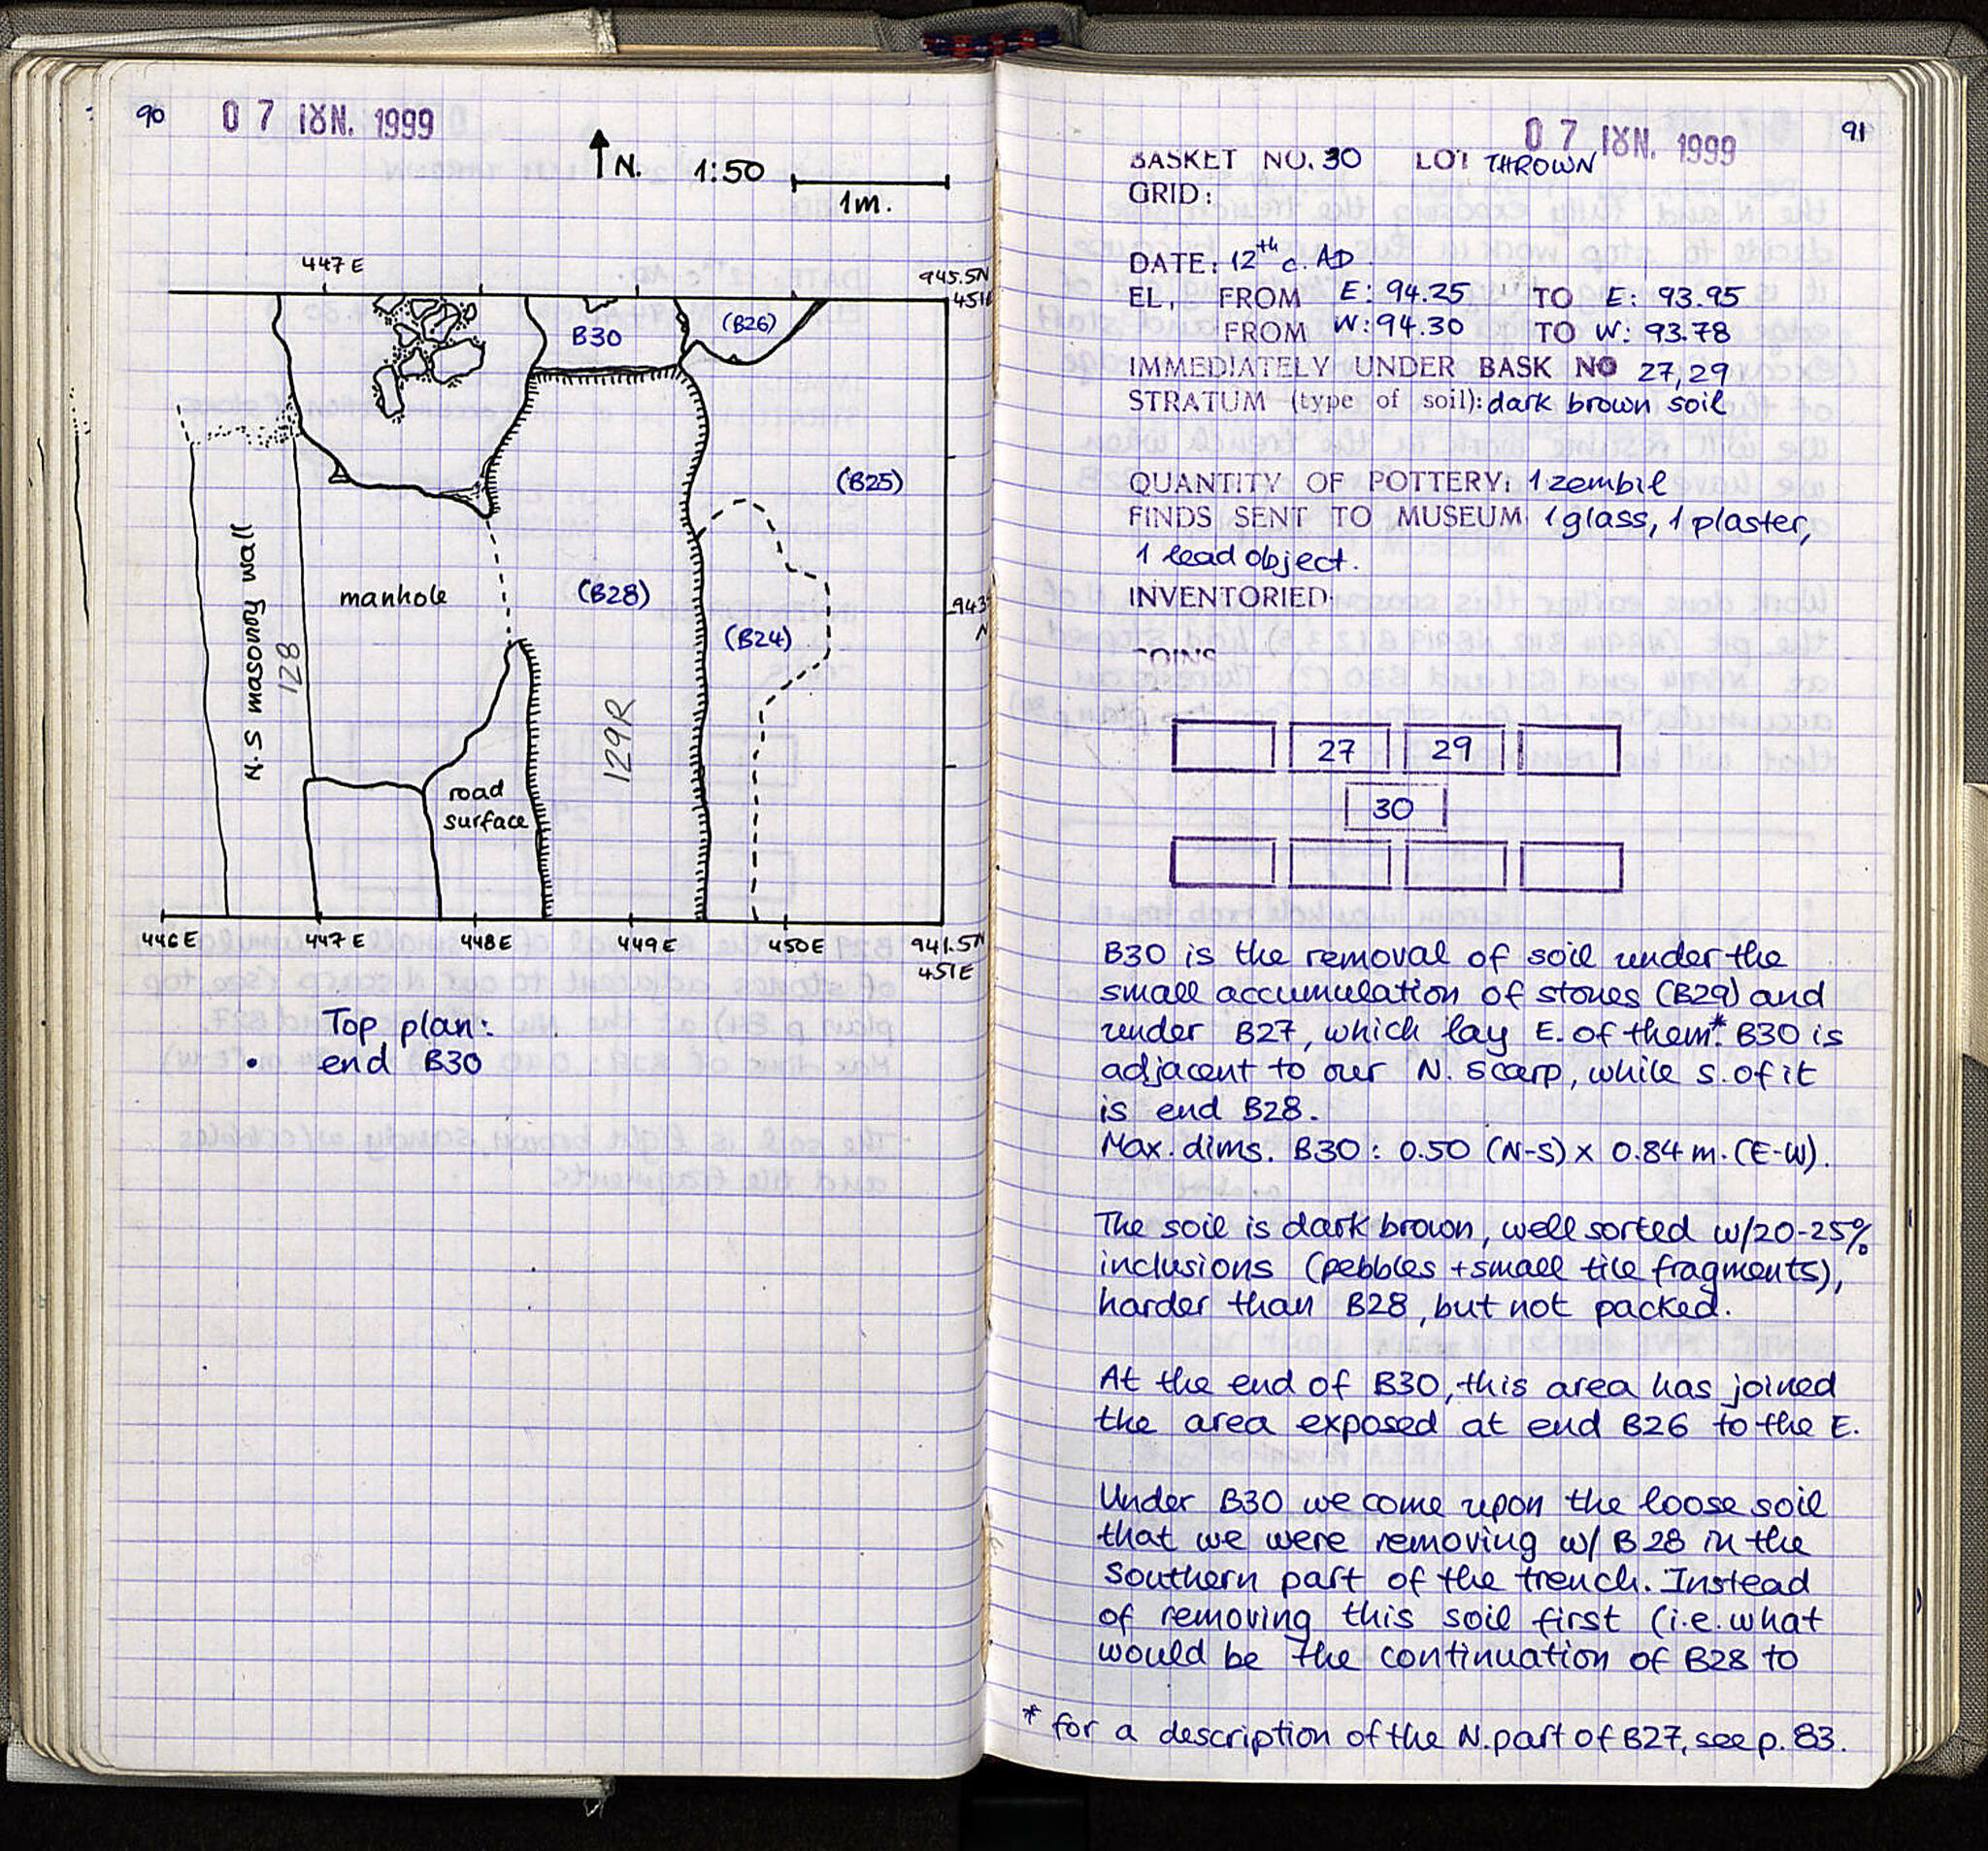 90
0 7 ΙΟΥΝ. 1999
N. 1:50
1m.
447 E
945.5N
451E
B30
(B26)
(B25)
N.S masonry wall
128
manhole
(B28)
(B24)
943
N
129R
road
surface
446 E
447 E
448 E
449 E
450 E
941.5N
451E
Top plan:
• end B30
0 7 ΙΟΥΝ. 1999
91
BASKET NO. 30 LOT THROWN
GRID:
DATE: 12th c. AD
EL, FROM E: 94.25 TO E: 93.95
FROM W: 94.30 TO W: 93.78
IMMEDIATELY UNDER BASK NO 27,29
STRATUM (type of soil): dark brown soil
QUANTITY OF POTTERY: 1 zembil
FINDS SENT TO MUSEUM: 1 glass, 1 plaster,
1 lead object.
INVENTORIED:
COINS
27 29
30
B30 is the removal of soil under the
small accumulation of stones (B29) and
under B27, which lay E. of them.* B30 is
adjacent to our N. scarp, while S. of it
is end B28.
Max. dims. B30: 0.50 (N-S) x 0.84 m. (E-W).
The soil is dark brown, well sorted w/20-25%
inclusions (pebbles + small tile fragments),
harder than B28, but not packed.
At the end of B30, this area has joined
the area exposed at end B26 to the E.
Under B30 we come upon the loose soil
that we were removing w/ B28 in the
Southern part of the trench. Instead
of removing this soil first (i.e. what
would be the continuation of B28 to
* for a description of the N. part of B27, see p. 83.